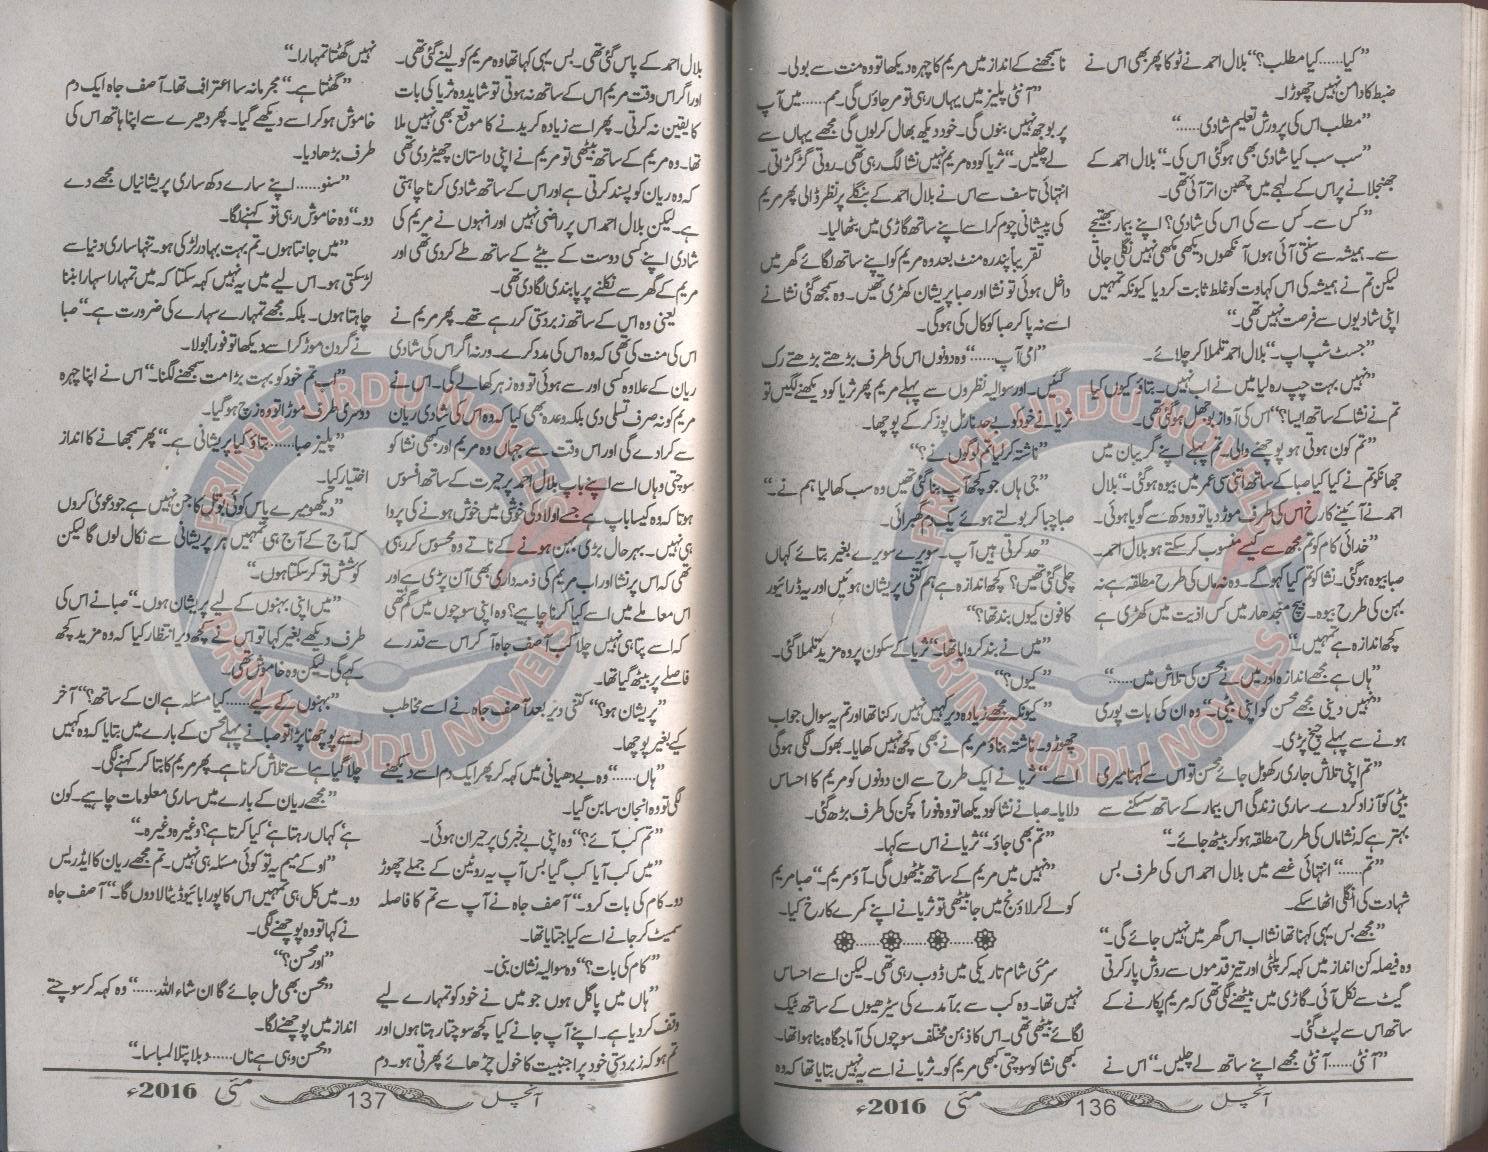 ”کیا......کیا مطلب؟“ بلال احمد نے ٹوکا پھر بھی اس نے
ضبط کا دامن نہیں چھوڑا۔
”مطلب اس کی پرورش تعلیم شادی.....“
”سب سب کیا شادی بھی ہوگئی اس کی۔“ بلال احمد کے
جھنجلانے پر اس کے لہجے میں چبھن اتر آئی تھی۔
”کس سے۔ کس سے کی اس کی شادی؟ اپنے بیمار بھتیجے
سے۔ ہمیشہ سے سنتی آئی ہوں آنکھوں دیکھی مکھی نہیں نگلی جاتی
لیکن تم نے ہمیشہ کی اس کہاوت کو غلط ثابت کردیا کیونکہ تمہیں
اپنی شادیوں سے فرصت نہیں تھی۔“
”جسٹ شپ اپ۔“ بلال احمد تلملا کر چلائے۔
”نہیں بہت چپ رہ لیا میں نے اب نہیں۔ بتاؤ کیوں کیا
تم نے نشا کے ساتھ ایسا؟“ اس کی آواز بوجھل ہوگئی تھی۔
”تم کون ہوتی ہو پوچھنے والی۔ تم پہلے اپنے گریبان میں
جھانکو تم نے کیا کیا صبا کے ساتھ اتنی سی عمر میں بیوہ ہوگئی۔“ بلال
احمد نے آئینے کا رخ اس کی طرف موڑ دیا تو وہ دکھ سے گویا ہوئی۔
”خدائی کام کو تم مجھ سے کیسے منسوب کرسکتے ہو بلال احمد۔
صبا بیوہ ہوگئی۔ نشا کو تم کیا کہو گے۔ وہ نہ ماں کی طرح مطلقہ ہے نہ
بہن کی طرح بیوہ۔ بیچ منجدھار میں کس اذیت میں کھڑی ہے
کچھ اندازہ ہے تمہیں۔“
”ہاں ہے مجھے اندازہ اور میں نے محسن کی تلاش میں.....“
”نہیں دینی مجھے محسن کو اپنی بیٹی۔“ وہ ان کی بات پوری
ہونے سے پہلے چیخ پڑی۔
”تم اپنی تلاش جاری رکھو مل جائے محسن تو اس سے کہنا میری
بیٹی کو آزاد کردے۔ ساری زندگی اس بیمار کے ساتھ سسکنے سے
بہتر ہے کہ نشا ماں کی طرح مطلقہ ہوکر بیٹھ جائے۔“
”تم.....“ انتہائی غصے میں بلال احمد اس کی طرف بس
شہادت کی انگلی اٹھا سکے۔
”مجھے بس یہی کہنا تھا نشا اب اس گھر میں نہیں جائے گی۔“
وہ فیصلہ کن انداز میں کہہ کر پلٹی اور تیز قدموں سے روش پار کرتی
گیٹ سے نکل آئی۔ گاڑی میں بیٹھنے لگی تھی کہ مریم پکارنے کے
ساتھ اس سے لپٹ گئی۔
”آنٹی.....آنٹی مجھے اپنے ساتھ لے چلیں۔“ اس نے
نا سمجھنے کے انداز میں مریم کا چہرہ دیکھا تو وہ منت سے بولی۔
”آنٹی پلیز میں یہاں رہی تو مرجاؤں گی۔ مم......میں آپ
پر بوجھ نہیں بنوں گی۔ خود دیکھ بھال کرلوں گی مجھے یہاں سے
لے چلیں۔“ ثریا کو وہ مریم نہیں نشا لگ رہی تھی۔ روتی گڑگڑاتی۔
انتہائی تاسف سے اس نے بلال احمد کے بنگلے پر نظر ڈالی پھر مریم
کی پیشانی چوم کر اسے اپنے ساتھ گاڑی میں بٹھالیا۔
تقریباً پندرہ منٹ بعد وہ مریم کو اپنے ساتھ لگائے گھر میں
داخل ہوئی تو نشا اور صبا پریشان کھڑی تھیں۔ وہ سمجھ گئی نشا نے
اسے نہ پا کر صبا کو کال کی ہوگی۔
”امی آپ.....“ وہ دونوں اس کی طرف بڑھتے بڑھتے رک
گئیں۔ اور سوالیہ نظروں سے پہلے مریم پھر ثریا کو دیکھنے لگیں تو
ثریا نے خود کو بے حد نارمل پوز کرکے پوچھا۔
”ناشتہ کرلیا تم لوگوں نے؟“
”جی ہاں جو کچھ آپ بنا گئی تھیں وہ سب کھالیا ہم نے۔“
صبا چبا کر بولتے ہوئے یک دم گھبرائی۔
”حد کرتی ہیں آپ۔ سویرے سویرے بغیر بتائے کہاں
چلی گئی تھیں؟ کچھ اندازہ ہے ہم کتنی پریشان ہوئیں اور یہ ڈرائیور
کا فون کیوں بند تھا؟“
”میں نے بند کروایا تھا۔“ ثریا کے سکون پر وہ مزید تلملا گئی۔
”کیوں؟“
”کیونکہ مجھے زیادہ دیر کہیں نہیں رکنا تھا اور تم یہ سوال جواب
چھوڑو۔ ناشتہ بناؤ مریم نے بھی کچھ نہیں کھایا۔ بھوک لگی ہوگی
اسے۔“ ثریا نے ایک طرح سے ان دونوں کو مریم کا احساس
دلایا۔ صبا نے نشا کو دیکھا تو وہ فوراً کچن کی طرف بڑھ گئی۔
”تم بھی جاؤ۔“ ثریا نے اس سے کہا۔
”نہیں میں مریم کے ساتھ بیٹھوں گی۔ آؤ مریم۔“ صبا مریم
کو لے کر لاؤنج میں جا بیٹھی تو ثریا نے اپنے کمرے کا رخ کیا۔
سرمئی شام تاریکی میں ڈوب رہی تھی۔ لیکن اسے احساس
نہیں تھا۔ وہ کب سے برآمدے کی سیڑھیوں کے ساتھ ٹیک
لگائے بیٹھی تھی۔ اس کا ذہن مختلف سوچوں کی آماجگاہ بنا ہوا تھا۔
کبھی نشا کو سوچتی کبھی مریم کو۔ ثریا نے اسے یہ نہیں بتایا تھا کہ وہ
آنچل 136 مئی 2016ء
بلال احمد کے پاس گئی تھی۔ بس یہی کہا تھا وہ مریم کو لینے گئی تھی۔
اور اگر اس وقت مریم اس کے ساتھ نہ ہوتی تو شاید وہ ثریا کی بات
کا یقین نہ کرتی۔ پھر اسے زیادہ کریدنے کا موقع بھی نہیں ملا
تھا۔ وہ مریم کے ساتھ بیٹھی تو مریم نے اپنی داستان چھیڑ دی تھی
کہ وہ ریان کو پسند کرتی ہے اور اس کے ساتھ شادی کرنا چاہتی
ہے۔ لیکن بلال احمد اس پر راضی نہیں اور انہوں نے مریم کی
شادی اپنے کسی دوست کے بیٹے کے ساتھ طے کردی تھی اور
مریم کے گھر سے نکلنے پر پابندی لگادی تھی۔
یعنی وہ اس کے ساتھ زبردستی کررہے تھے۔ پھر مریم نے
اس کی منت کی تھی کہ وہ اس کی مدد کرے۔ ورنہ اگر اس کی شادی
ریان کے علاوہ کسی اور سے ہوئی تو وہ زہر کھالے گی۔ اس نے
مریم کو نہ صرف تسلی دی بلکہ وعدہ بھی کیا کہ وہ اس کی شادی ریان
سے کرادے گی اور اس وقت سے جہاں وہ مریم اور کبھی نشا کو
سوچتی وہاں اسے اپنے باپ بلال احمد پر حیرت کے ساتھ افسوس
ہوتا کہ وہ کیسا باپ ہے جسے اولاد کی خوشی میں خوش ہونے کی پروا
ہی نہیں۔ بہرحال بڑی بہن ہونے کے ناتے وہ محسوس کررہی
تھی کہ اس پر نشا اور اب مریم کی ذمہ داری بھی آن پڑی ہے اور
اس معاملے میں اسے کیا کرنا چاہیے؟ وہ اپنی سوچوں میں گم تھی
کہ اسے پتا ہی نہیں چلا کب آصف جاہ آکر اس سے قدرے
فاصلے پر بیٹھ گیا تھا۔
”پریشان ہو؟“ کتنی دیر بعد آصف جاہ نے اسے مخاطب
کیے بغیر پوچھا۔
”ہاں.....“ وہ بے دھیانی میں کہہ کر پھر ایک دم اسے دیکھنے
لگی تو وہ انجان سا بن گیا۔
”تم کب آئے؟“ وہ اپنی بے خبری پر حیران ہوئی۔
”میں کب آیا کب گیا بس آپ یہ روٹین کے جملے چھوڑ
دو۔ کام کی بات کرو۔“ آصف جاہ نے آپ سے تم کا فاصلہ
سمیٹ کر جانے اسے کیا جتایا تھا۔
”کام کی بات؟“ وہ سوالیہ نشان بنی۔
”ہاں میں پاگل ہوں جو میں نے خود کو تمہارے لیے
وقف کردیا ہے۔ اپنے آپ جانے کیا کچھ سوچتا رہتا ہوں اور
تم ہو کہ زبردستی خود پر اجنبیت کا خول چڑھائے پھرتی ہو۔ دم
نہیں گھٹتا تمہارا۔“
”گھٹتا ہے۔“ مجرمانہ سا اعتراف تھا۔ آصف جاہ ایک دم
خاموش ہوکر اسے دیکھے گیا۔ پھر دھیرے سے اپنا ہاتھ اس کی
طرف بڑھا دیا۔
”سنو......اپنے سارے دکھ ساری پریشانیاں مجھے دے
دو۔“ وہ خاموش رہی تو کہنے لگا۔
”میں جانتا ہوں۔ تم بہت بہادر لڑکی ہو۔ تنہا ساری دنیا سے
لڑسکتی ہو۔ اس لیے میں یہ نہیں کہہ سکتا کہ میں تمہارا سہارا بننا
چاہتا ہوں۔ بلکہ مجھے تمہارے سہارے کی ضرورت ہے۔“ صبا
نے گردن موڑ کر اسے دیکھا تو فوراً بولا۔
”اب تم خود کو بہت بڑا مت سمجھنے لگنا۔“ اس نے اپنا چہرہ
دوسری طرف موڑا تو وہ زچ ہوگیا۔
”پلیز صبا.......بتاؤ کیا پریشانی ہے۔“ پھر سمجھانے کا انداز
اختیار کیا۔
”دیکھو میرے پاس کوئی بوتل کا جن نہیں ہے جو دعویٰ کروں
کہ آج کے آج ہی تمہیں ہر پریشانی سے نکال لوں گا لیکن
کوشش تو کرسکتا ہوں۔“
”میں اپنی بہنوں کے لیے پریشان ہوں۔“ صبا نے اس کی
طرف دیکھے بغیر کہا تو اس نے کچھ دیر انتظار کیا کہ وہ مزید کچھ
کہے گی لیکن وہ خاموش تھی۔
”بہنوں کے لیے......کیا مسئلہ ہے ان کے ساتھ؟“ آخر
اسے پوچھنا پڑا تو صبا نے پہلے محسن کے بارے میں بتایا کہ وہ کہیں
چلا گیا ہے اسے تلاش کرنا ہے۔ پھر مریم کا بتا کر کہنے لگی۔
”مجھے ریان کے بارے میں ساری معلومات چاہیے۔ کون
ہے‘ کہاں رہتا ہے‘ کیا کرتا ہے؟ وغیرہ وغیرہ۔“
”اوکے میم یہ تو کوئی مسئلہ ہی نہیں۔ تم مجھے ریان کا ایڈریس
دو۔ میں کل ہی تمہیں اس کا پورا بائیو ڈیٹا لادوں گا۔“ آصف جاہ
نے کہا تو وہ پوچھنے لگی۔
”اور محسن؟“
”محسن بھی مل جائے گا ان شاء اللہ.....“ وہ کہہ کر سوچتے
انداز میں پوچھنے لگا۔
”محسن وہی ہے ناں.....دبلا پتلا لمبا سا۔“
آنچل 137 مئی 2016ء
PRIME URDU NOVELS
PRIME URDU NOVELS
PRIME URDU NOVELS
PRIME URDU NOVELS